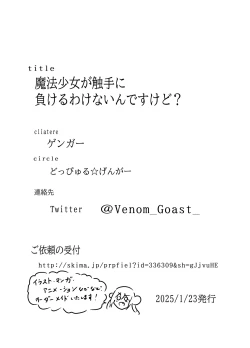 title
魔法少女が触手に
負けるわけないんですけど？
cliatere
ゲンガー
circle
どっぴゅる☆げんがー
連絡先
Twitter @Venom_Goast_
ご依頼の受付
http://skima.jp/prpfiel?id=336309&sh=gJjvuHE
イラスト・マンガ・
アニメーションなどなど
オーダーメイドいたします!
2025/1/23発行